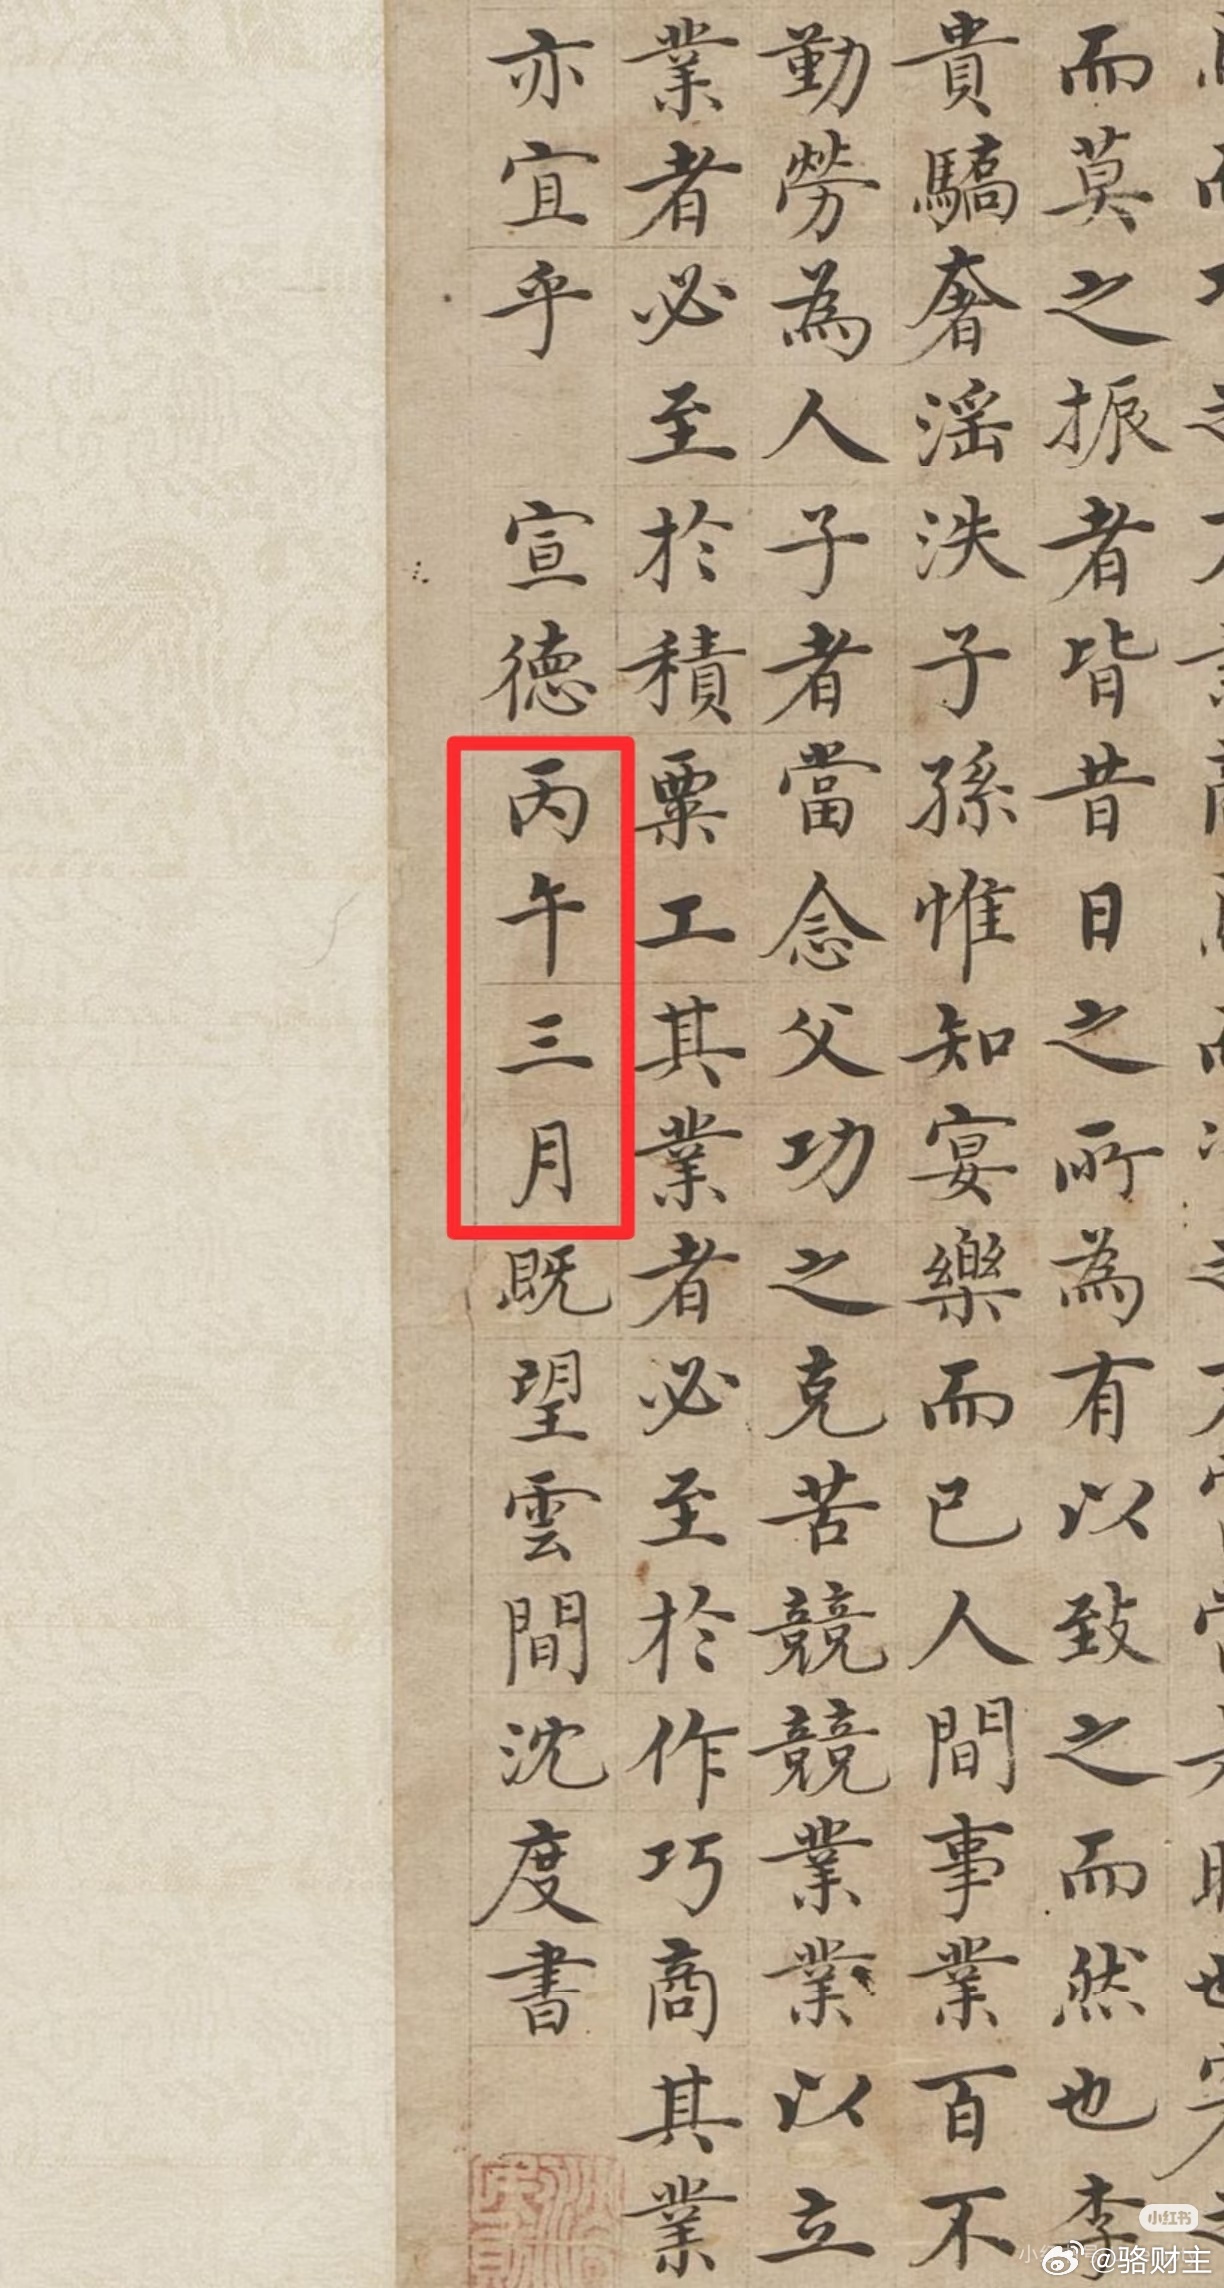 而莫之振者皆昔日之所為有以致之而然也李
貴驕奢滛泆子孫惟知宴樂而已人間事業百不
勤勞為人子者當念父功之克苦競競業業以立
業者必至於積粟工其業者必至於作巧商其業
亦宜乎 宣德丙午三月既望雲間沈度書
小红书
@骆财主